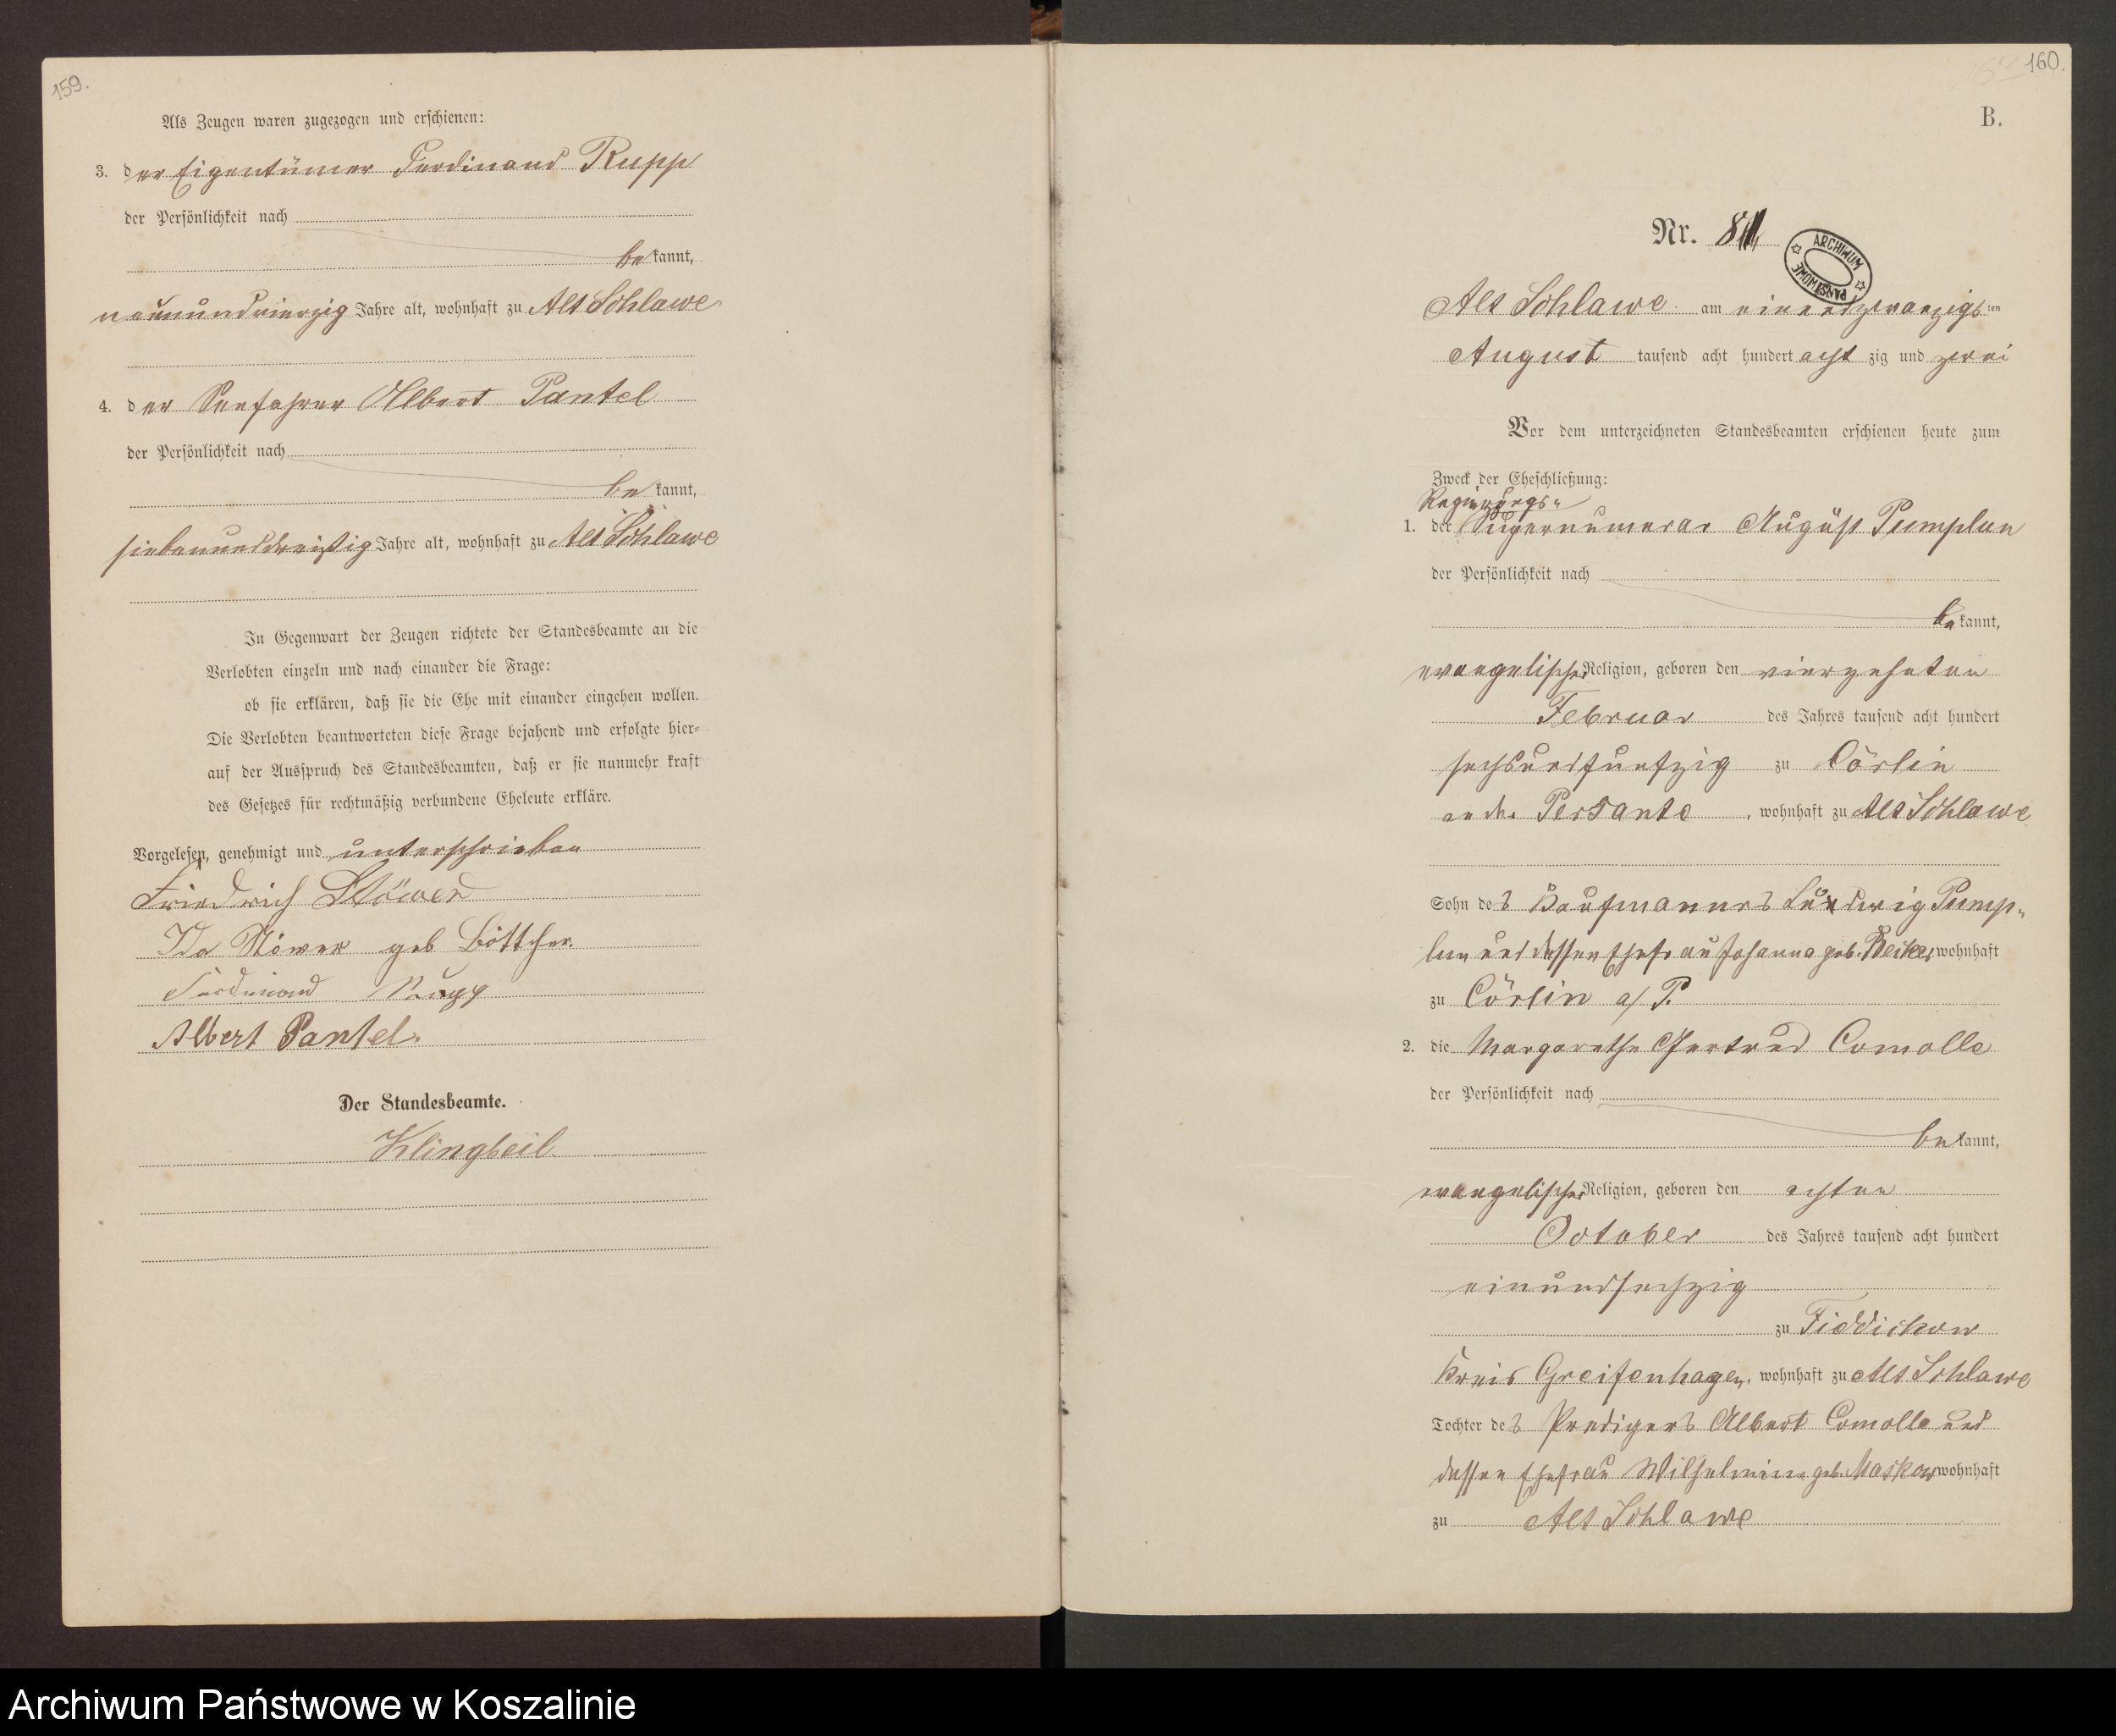 159.
Als Zeugen waren zugezogen und erschienen:
3. der Eigentümer Ferdinand Rupp
der Persönlichkeit nach
bekannt,
neunundvierzig Jahre alt, wohnhaft zu Alt Schlawe
4. der Seefahrer Albert Pantel
der Persönlichkeit nach
bekannt,
siebenunddreißig Jahre alt, wohnhaft zu Alt Schlawe
In Gegenwart der Zeugen richtete der Standesbeamte an die
Verlobten einzeln und nach einander die Frage:
ob sie erklären, daß sie die Ehe mit einander eingehen wollen.
Die Verlobten beantworteten diese Frage bejahend und erfolgte hier-
auf der Ausspruch des Standesbeamten, daß er sie nunmehr kraft
des Gesetzes für rechtmäßig verbundene Eheleute erkläre.
Vorgelesen, genehmigt und unterschrieben
Friedrich Stöwer
Ida Stöwer geb Böttcher.
Ferdinand Rupp
Albert Pantel.
Der Standesbeamte.
Klingbeil
160.
B.
Nr. 8
ARCHIWUM PAŃSTWOWE
Alt Schlawe am einundzwanzigsten
August tausend acht hundert achtzig und zwei
Vor dem unterzeichneten Standesbeamten erschienen heute zum
Zweck der Eheschließung:
Regierungs-
1. der Supernumerar August Pumplun
der Persönlichkeit nach
bekannt,
evangelischer Religion, geboren den vierzehnten
Februar des Jahres tausend acht hundert
sechsundfünfzig zu Cörlin
an der Persante, wohnhaft zu Alt Schlawe
Sohn des Kaufmanns Ludwig Pump-
lun und dessen Ehefrau Johanna geb. Becker wohnhaft
zu Cörlin a/P.
2. die Margarethe Gertrud Comolle
der Persönlichkeit nach
bekannt,
evangelischer Religion, geboren den achten
October des Jahres tausend acht hundert
einundsechzig
zu Fiddichow
Kreis Greifenhagen, wohnhaft zu Alt Schlawe
Tochter des Predigers Albert Comolle und
dessen Ehefrau Wilhelmine geb. Maskow wohnhaft
zu Alt Schlawe
Archiwum Państwowe w Koszalinie